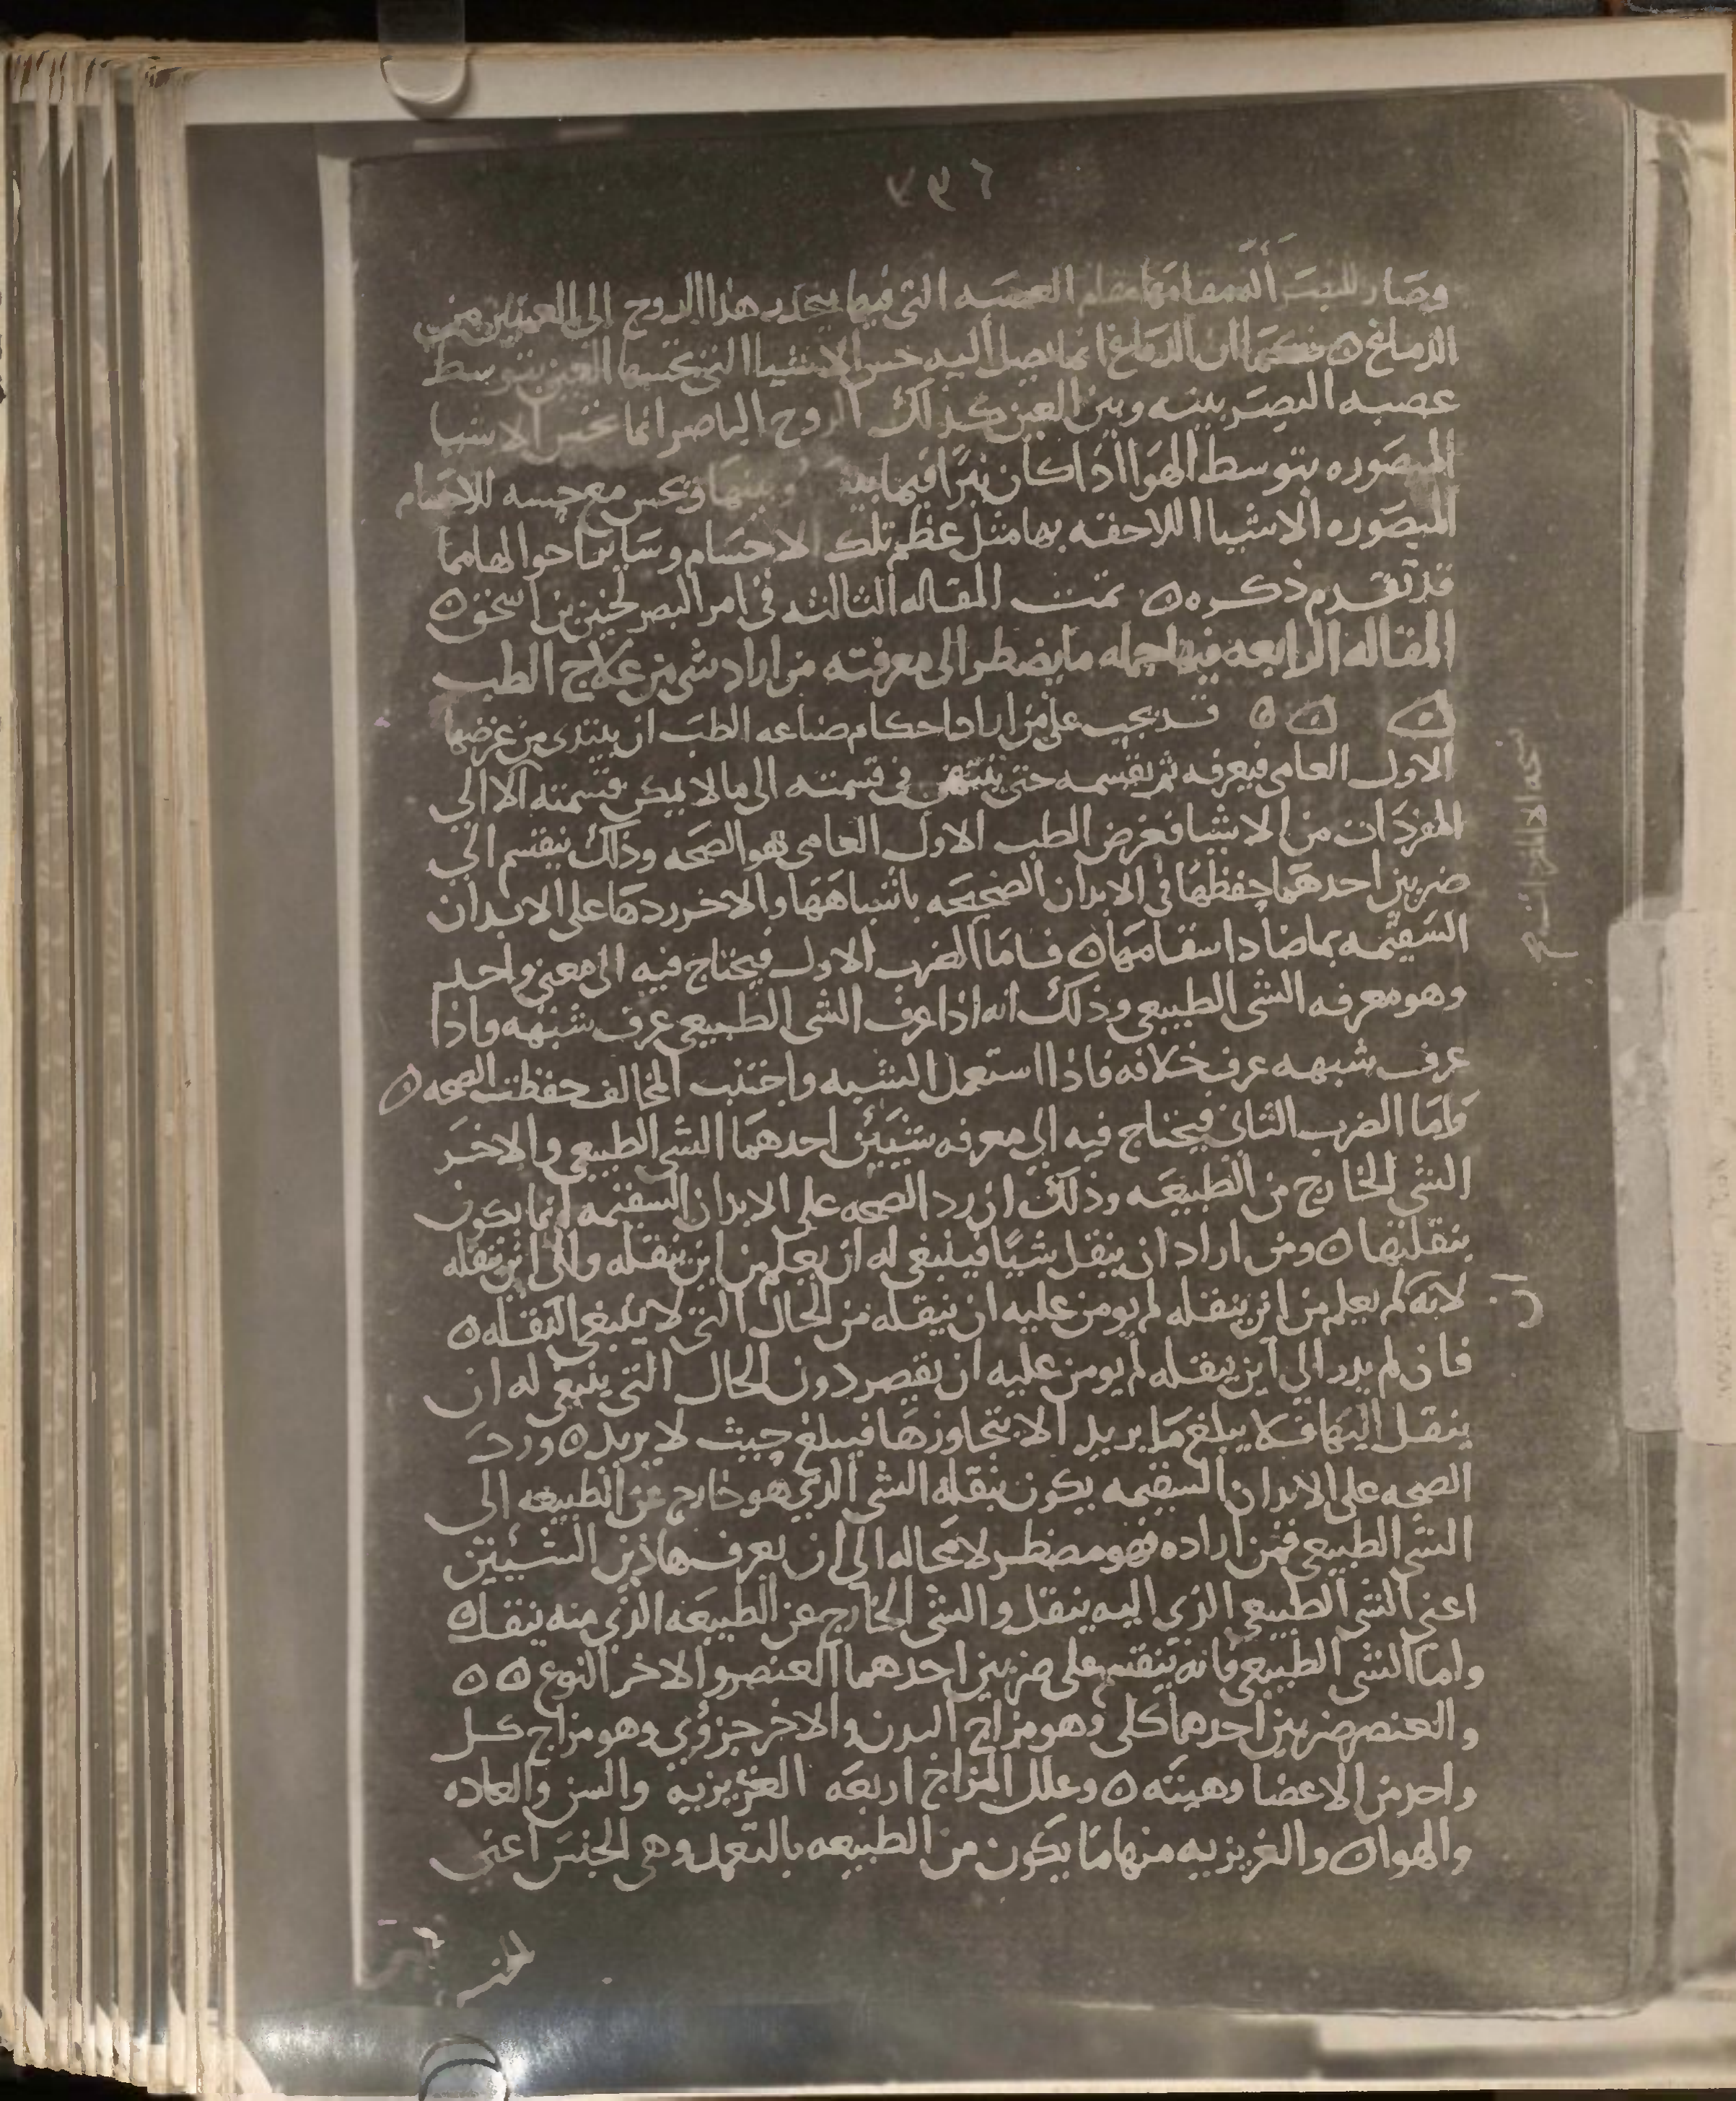 وصار للبصر آله مقامها مقام العصبه التى فيها ينحدر هذا الروح الى العينين من
الدماغ ٥ فكما ان الدماغ انما يصل اليه حس الاشيا التى تحسها العين بتوسط
عصبه البصر بينه وبين العين كذلك الروح الباصر انما تحس الاشيا
المبصوره بتوسط الهوا اذا كان نيرا فيما بينه وبينها ويحس مع حسه للاجسام
المبصوره الاشيا اللاحقه بها مثل عظم تلك الاجسام وساير احوالها مما
قد تقدم ذكره ٥ تمت المقاله الثالثه فى امر البصر لحنين بن اسحق ٥
المقاله الرابعه فيها جمله ما يضطر الى معرفته من اراد شى من علاج الطب
٥ ٥ ٥ قد يجب على من اراد احكام صناعه الطب ان يبتدى من غرضها
الاول العامى فيعرفه ثم يقسمه حتى ينتهى فى قسمته الى ما لا يمكن قسمته الا الى
المفردات من الاشيا فغرض الطب الاول العامى هو الصحه وذلك ينقسم الى
ضربين احدهما حفظها فى الابدان الصحيحه باشباهها والاخر ردها على الابدان
السقيمه بما ضاد اسقامها ٥ فاما الضرب الاول فيحتاج فيه الى معنى واحد
وهو معرفه الشى الطبيعى وذلك انه اذا عرف الشى الطبيعى عرف شبهه واذا
عرف شبهه عرف خلافه فاذا استعمل الشبيه واجتنب المخالف حفظت الصحه ٥
واما الضرب الثانى فيحتاج فيه الى معرفه شيئين احدهما الشى الطبيعى والاخر
الشى الخارج من الطبيعه وذلك ان رد الصحه على الابدان السقيمه انما يكون
بنقلتها ٥ ومن اراد ان ينقل شيا فينبغى له ان يعلم من اين ينقله والى اين ينقله
لانه لم يعلم من اين ينقله لم يومن عليه ان ينقله من الحال التى لا ينبغى النقله ٥
ان
فان لم يدر الى اين ينقله لم يومن عليه ان يقصر دون الحال التى ينبغى له ان
ينقل اليها فلا يبلغ ما يريد الا يتجاوزها فيبلغ حيث لا يريد ٥ ورد
الصحه على الابدان السقيمه يكون بنقله الشى الذى هو خارج عن الطبيعه الى
الشى الطبيعى فمن اراده فهو مضطر لا محاله الى ان يعرف هاذين الشيئين
اعنى الشى الطبيعى الذى اليه ينقل والشى الخارج عن الطبيعه الذى منه ينقل ٥
واما الشى الطبيعى فانه ينقسم على ضربين احدهما العنصر والاخر النوع ٥ ٥
والعنصر ضربين احدهما كلى وهو مزاج البدن والاخر جزؤى وهو مزاج كل
واحد من الاعضا وهيئته ٥ وعلل المزاج اربعه الغريزيه والسن والعاده
والهوا ٥ والغريزيه منها ما يكون من الطبيعه بالتعمد وهى الجنس اعنى